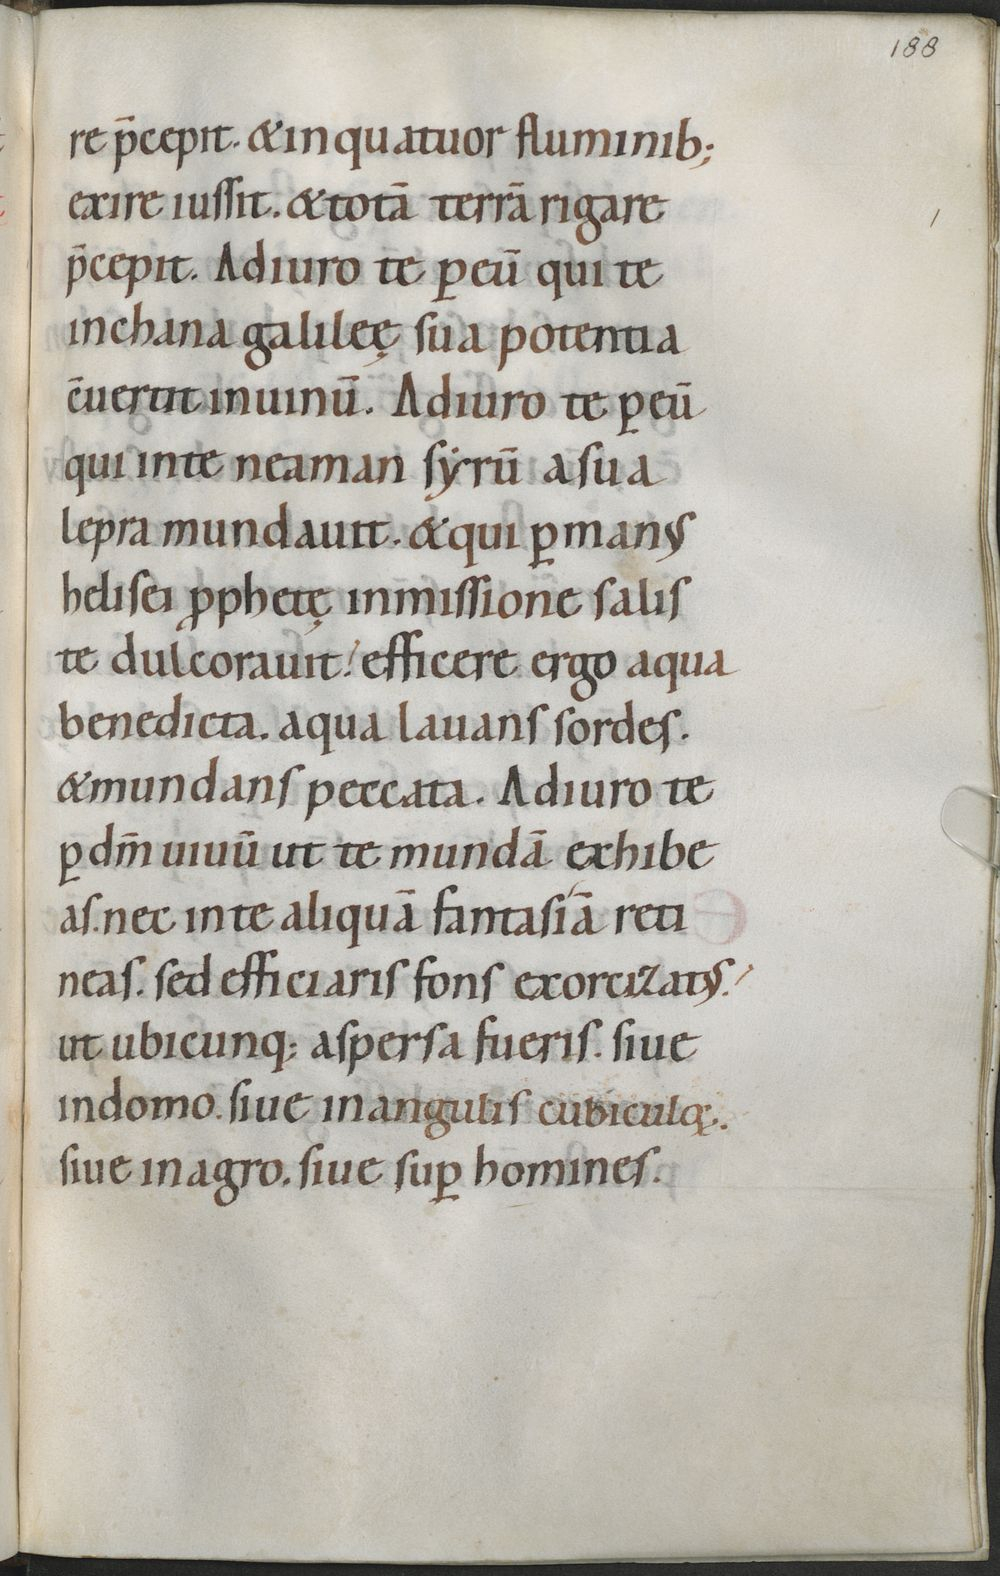 188
re p̄cepit. & in quatuor fluminib;
exire iussit. & totā terrā rigare
p̄cepit. Adiuro te ꝑ eū qui te
in chana galileę sua potentia
c̄uertit in uinū. Adiuro te ꝑ eū
qui in te neaman sẏrū a sua
lepra mundauit. & qui ꝑ manꝰ
helisei ꝓphetę in missione salis
te dulcorauit! efficere ergo aqua
benedicta. aqua lauans sordes.
& mundans peccata. Adiuro te
ꝑ dm̄ uiuū ut te mundā exhibe
as. nec in te aliquā fantasiā reti
neas. sed efficiaris fons exorcizatꝰ!
ut ubicunq; aspersa fueris. siue
in domo. siue in angulis cubiculoꝝ.
siue in agro. siue suꝑ homines.